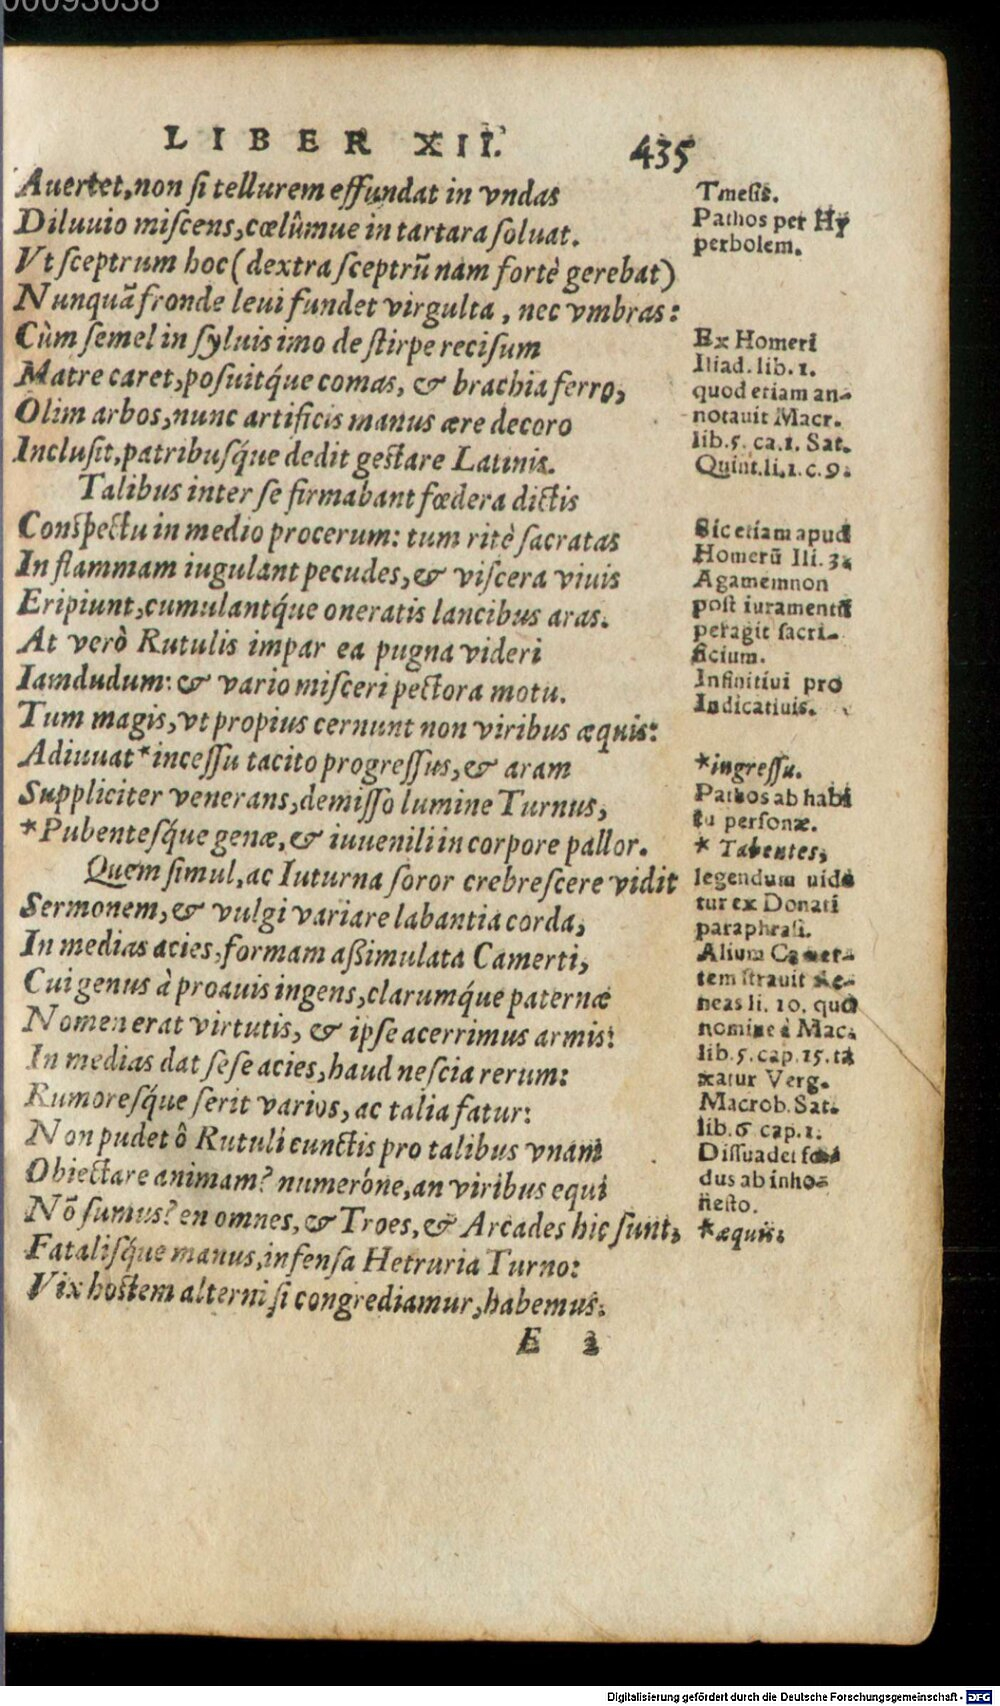 00093038
LIBER XII. 435
Auertet, non si tellurem effundat in vndas
Diluuio miscens, cœlûmue in tartara soluat.
Vt sceptrum hoc (dextra sceptrū nam fortè gerebat)
Nunquā fronde leui fundet virgulta, nec vmbras:
Cùm semel in syluis imo de stirpe recisum
Matre caret, posuitq́ue comas, & brachia ferro,
Olim arbos, nunc artificis manus ære decoro
Inclusit, patribusq́ue dedit gestare Latinis.
Talibus inter se firmabant fœdera dictis
Conspectu in medio procerum: tum ritè sacratas
In flammam iugulant pecudes, & viscera viuis
Eripiunt, cumulantq́ue oneratis lancibus aras.
At verò Rutulis impar ea pugna videri
Iamdudum: & vario misceri pectora motu.
Tum magis, vt propius cernunt non viribus æquis:
Adiuuat *incessu tacito progressus, & aram
Suppliciter venerans, demisso lumine Turnus,
*Pubentesq́ue genæ, & iuuenili in corpore pallor.
Quem simul, ac Iuturna soror crebrescere vidit
Sermonem, & vulgi variare labantia corda,
In medias acies, formam aßimulata Camerti,
Cui genus à proauis ingens, clarumq́ue paternæ
Nomen erat virtutis, & ipse acerrimus armis:
In medias dat sese acies, haud nescia rerum:
Rumoresq́ue serit varios, ac talia fatur:
Non pudet ô Rutuli cunctis pro talibus vnam
Obiectare animam? numeróne, an viribus equi
Nō sumus? en omnes, & Troes, & Arcades hic sunt,
Fatalisq́ue manus, infensa Hetruria Turno:
Vix hostem alterni si congrediamur, habemus.
E 2
Tmesis.
Pathos per Hy
perbolem.
Ex Homeri
Iliad. lib. 1.
quod etiam an-
notauit Macr.
lib. 5. ca. 1. Sat.
Quint. li. 1. c. 9.
Sic etiam apud
Homerū Ili. 3.
Agamemnon
post iuramentū
peragit sacri-
ficium.
Infinitiui pro
Indicatiuis.
*ingressu.
Pathos ab habi
tu personæ.
* Tabentes,
legendum uide
tur ex Donati
paraphrasi.
Alium Camer-
tem strauit Ae-
neas li. 10. quo
nomine à Mac.
lib. 5. cap. 15. ta
xatur Verg.
Macrob. Sat.
lib. 6 cap. 1.
Dissuadet fœ
dus ab inho-
nesto.
*æquis:
Digitalisierung gefördert durch die Deutsche Forschungsgemeinschaft - DFG